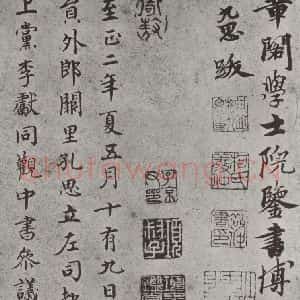 章閣學士院鑒書博
九思跋
至正二年夏五月十有九日
員外郎闕里孔思立左司
上黨李獻同觀中書參議
shufawang.cn